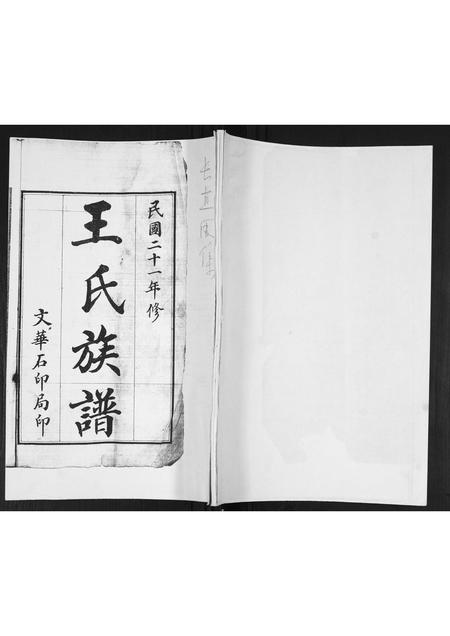 民國二十一年修
王氏族譜
文華石印局印